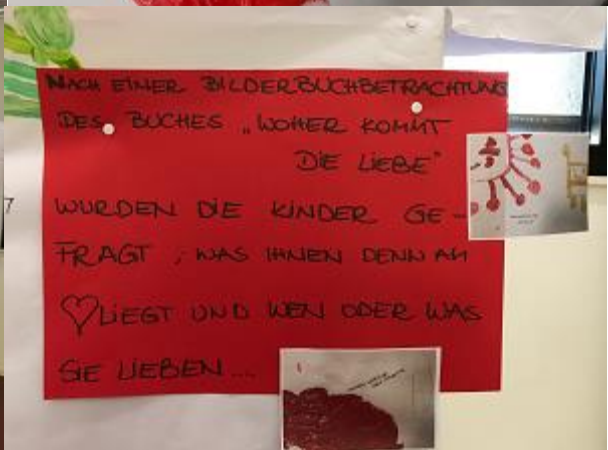 NACH EINER BILDERBUCHBETRACHTUNG
DES BUCHES „WOHER KOMMT
DIE LIEBE"
WURDEN DIE KINDER GE-
FRAGT, WAS IHNEN DENN AM
♡ LIEGT UND WEN ODER WAS
SIE LIEBEN...